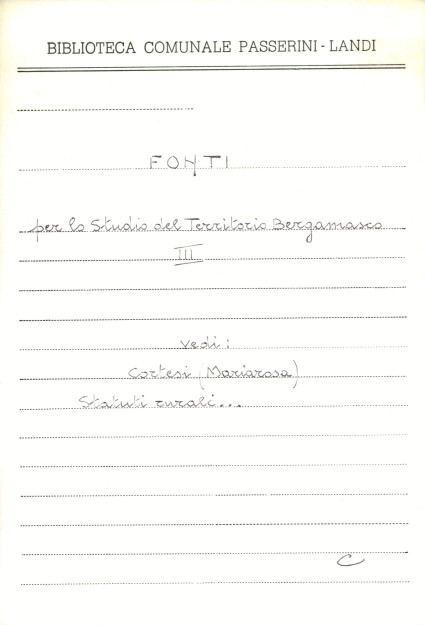 BIBLIOTECA COMUNALE PASSERINI - LANDI
FONTI
per lo Studio del Territorio Bergamasco
III
vedi:
Cortesi (Mariarosa)
Statuti rurali...
C